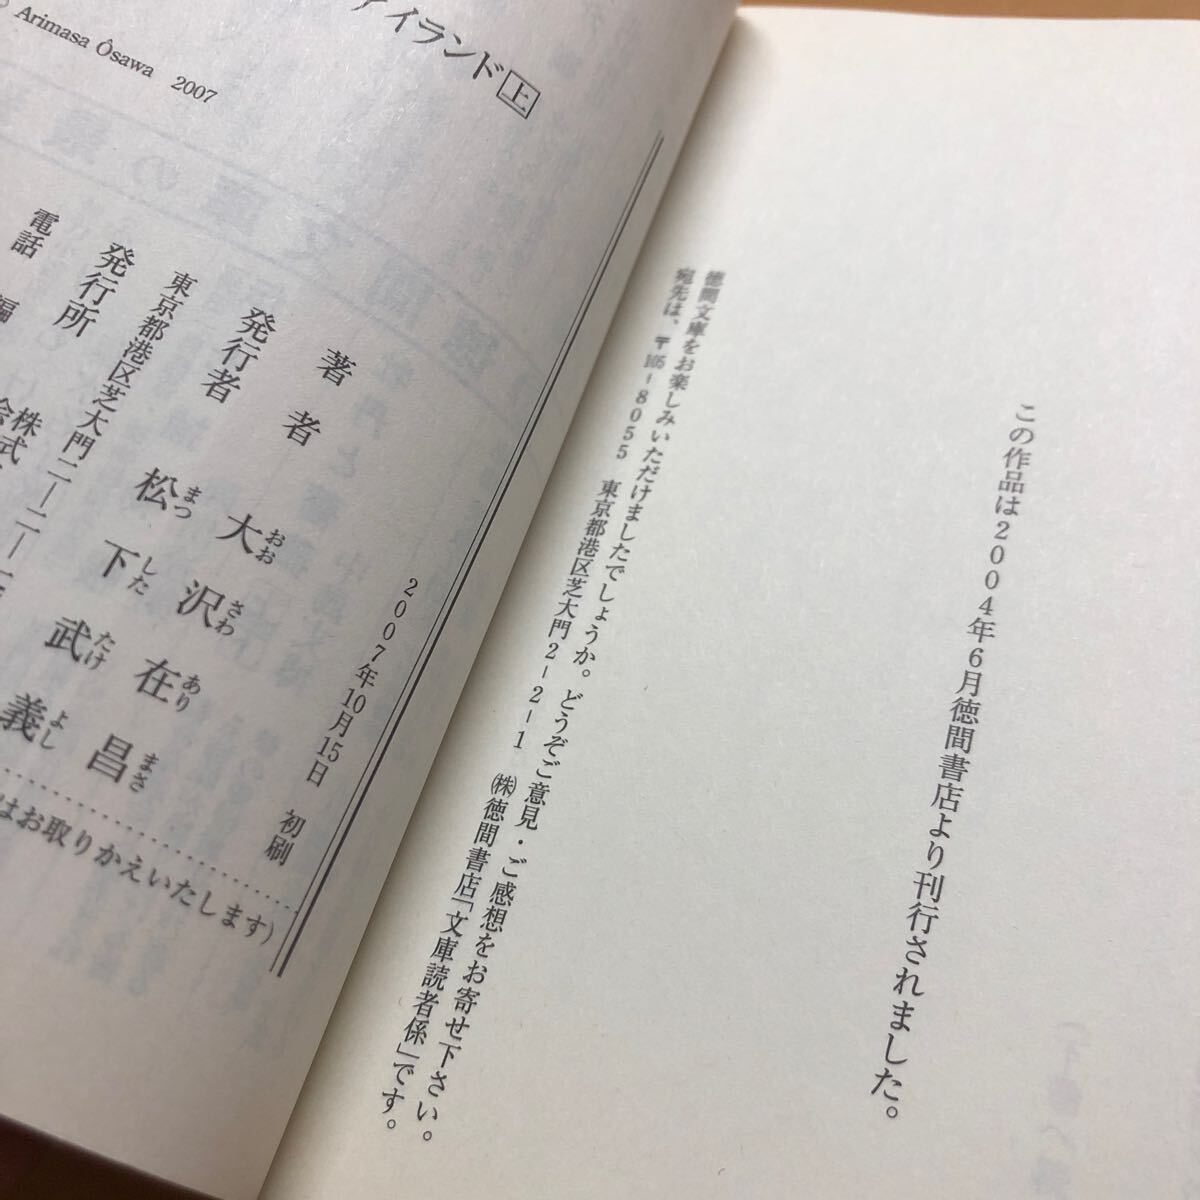 この作品は2004年6月徳間書店より刊行されました。
徳間文庫をお楽しみいただけましたでしょうか。どうぞご意見・ご感想をお寄せ下さい。
宛先は、〒105-8055 東京都港区芝大門2-2-1 ㈱徳間書店「文庫読者係」です。
アイランド 上
Arimasa Ôsawa 2007
2007年10月15日 初刷
著者 大沢在昌
おおさわありまさ
発行者 松下武義
まつしたたけよし
東京都港区芝大門二―二―一
発行所 株式
電話 編
はお取りかえいたします)